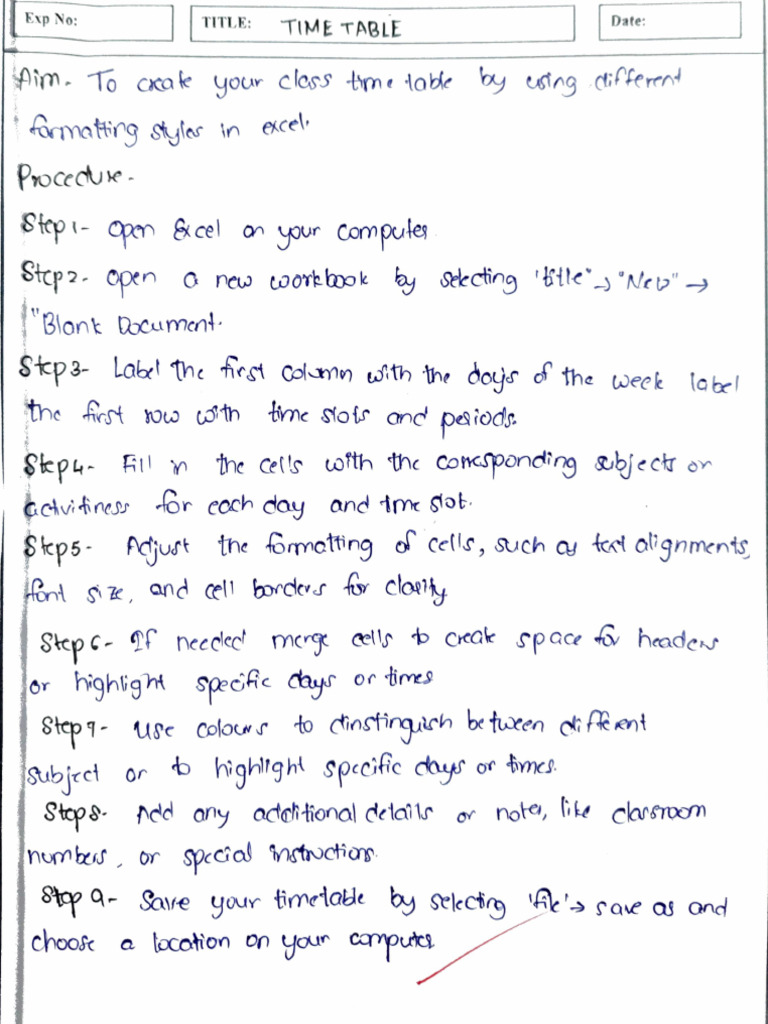 Exp No:
TITLE: TIME TABLE
Date:
Aim- To create your class time table by using different
formatting styles in excel.
Procedure-
Step1- Open Excel on your computer
Step2- open a new workbook by selecting 'title" → "New" →
"Blank Document.
Step3- Label the first column with the days of the week label
the first row with time slots and periods.
Step4- Fill in the cells with the corresponding subjects or
activitiness for each day and time slot.
Step5- Adjust the formatting of cells, such as text alignments,
font size, and cell borders for clarity
Step6- If needed merge cells to create space for headers
or highlight specific days or times
Step7- Use colours to dinstinguish between different
subject or to highlight specific days or times.
Step8- Add any additional details or notes, like classroom
numbers, or special instructions.
Step 9- Save your timetable by selecting 'file' → save as and
choose a location on your computer